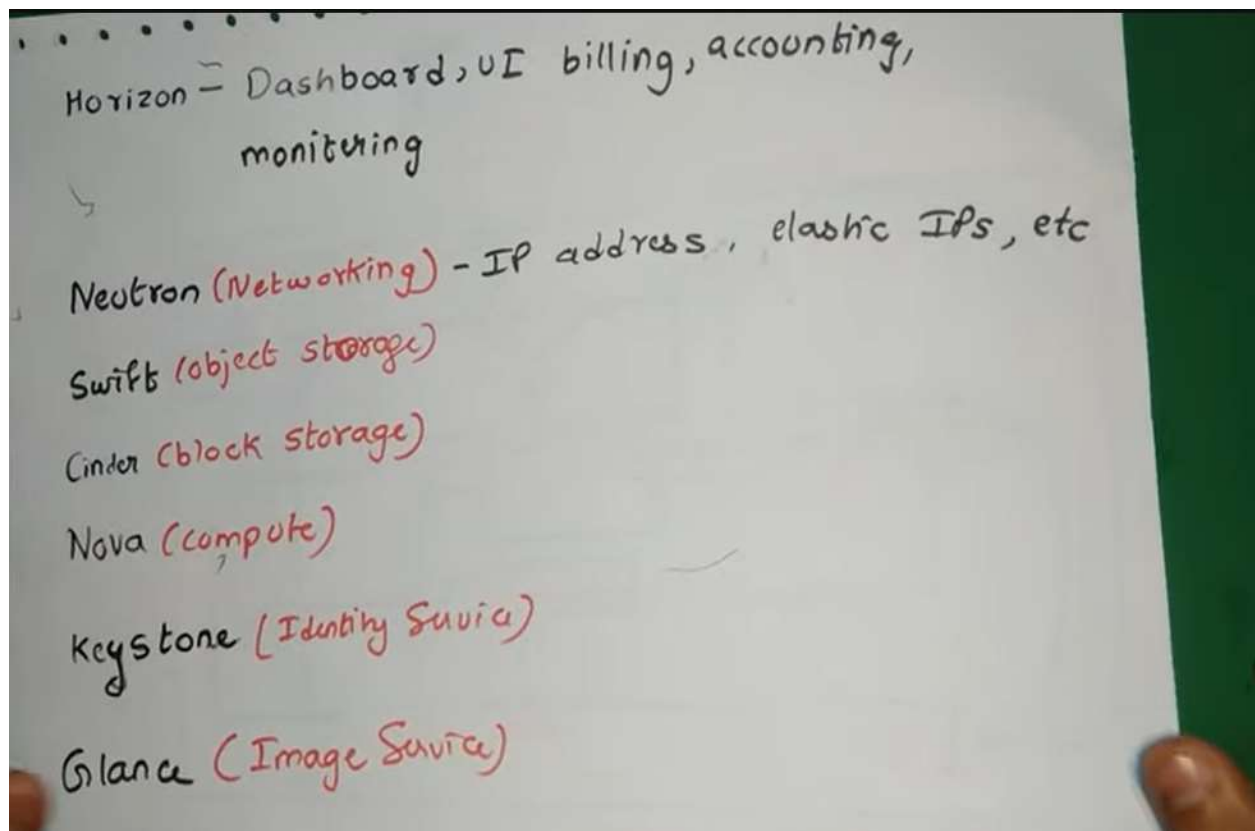 Horizon - Dashboard, UI billing, accounting,
monitering
Neutron (Networking) - IP address, elastic IPs, etc
Swift (object storage)
Cinder (block storage)
Nova (compute)
Keystone (Identity Service)
Glance (Image Service)